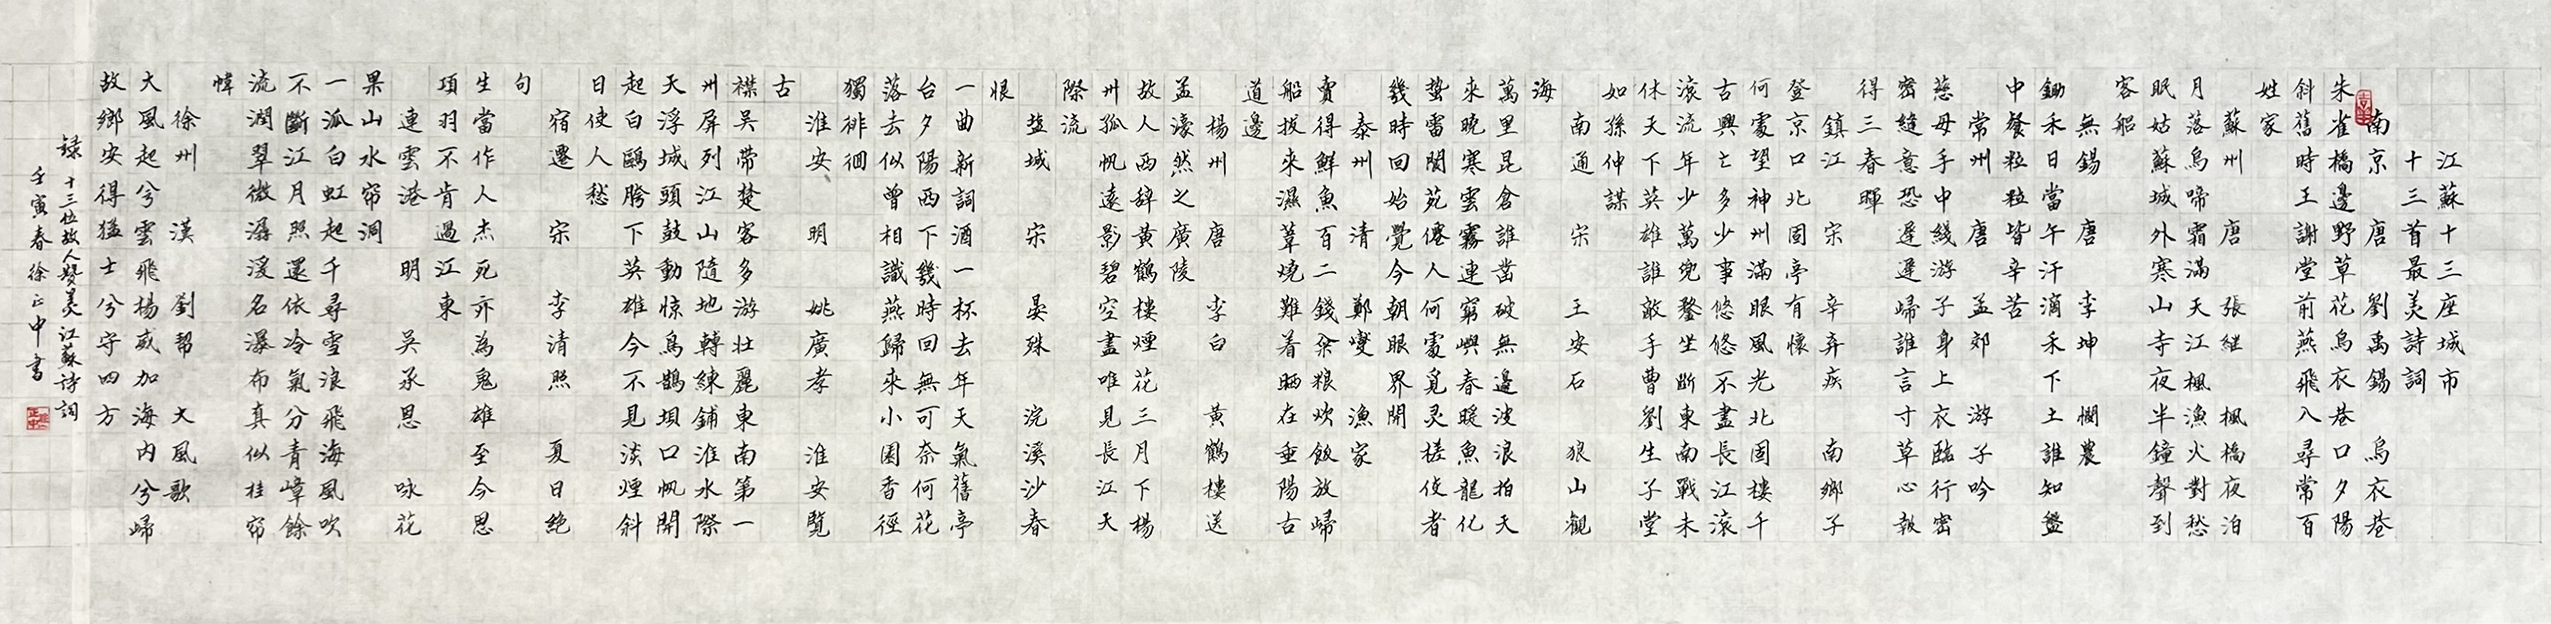 江蘇十三座城市
十三首最美詩詞
南京 唐 劉禹錫 烏衣巷
朱雀橋邊野草花烏衣巷口夕陽
斜舊時王謝堂前燕飛入尋常百
姓家
蘇州 唐 張継 楓橋夜泊
月落烏啼霜滿天江楓漁火對愁
眠姑蘇城外寒山寺夜半鐘聲到
客船
無錫 唐 李坤 憫農
鋤禾日當午汗滴禾下土誰知盤
中餐粒粒皆辛苦
常州 唐 孟郊 游子吟
慈母手中綫游子身上衣臨行密
密縫意恐遲遲歸誰言寸草心報
得三春暉
鎮江 宋 辛弃疾 南鄉子
登京口北固亭有懷
何處望神州滿眼風光北固樓千
古興亡多少事悠悠不盡長江滾
滾流年少萬兜鍪坐斷東南戰未
休天下英雄誰敵手曹劉生子堂
如孫仲謀
南通 宋 王安石 狼山觀
海
萬里昆倉誰凿破無邊波浪拍天
來曉寒雲霧連窮嶼春暖魚龍化
蟄雷閬苑僊人何處覓灵槎使者
幾時回始覺今朝眼界開
泰州 清 鄭燮 漁家
賣得鮮魚百二錢籴粮炊飯放歸
船拔來濕葦燒難着晒在垂陽古
道邊
楊州 唐 李白 黃鶴樓送
孟濠然之廣陵
故人西辞黃鶴樓煙花三月下楊
州孤帆遠影碧空盡唯見長江天
際流
盐城 宋 晏殊 浣溪沙春
恨
一曲新詞酒一杯去年天氣舊亭
台夕陽西下幾時回無可奈何花
落去似曾相識燕歸來小園香徑
獨徘徊
淮安 明 姚廣孝 淮安覽
古
襟吴帶楚客多游壯麗東南第一
州屏列江山隨地轉練鋪淮水際
天浮城頭鼓動惊鳥鵲垻口帆開
起白鷗胯下英雄今不見淡煙斜
日使人愁
宿遷 宋 李清照 夏日絶
句
生當作人杰死亦為鬼雄至今思
項羽不肯過江東
連雲港 明 吳承恩 咏花
果山水帘洞
一泒白虹起千尋雪浪飛海風吹
不斷江月照還依冷氣分青嶂餘
流潤翠微潺湲名瀑布真似挂帘
幃
徐州 漢 劉帮 大風歌
大風起兮雲飛揚威加海內兮歸
故鄉安得猛士兮守四方
錄十三位故人贊美江蘇詩詞
壬寅春徐正中書